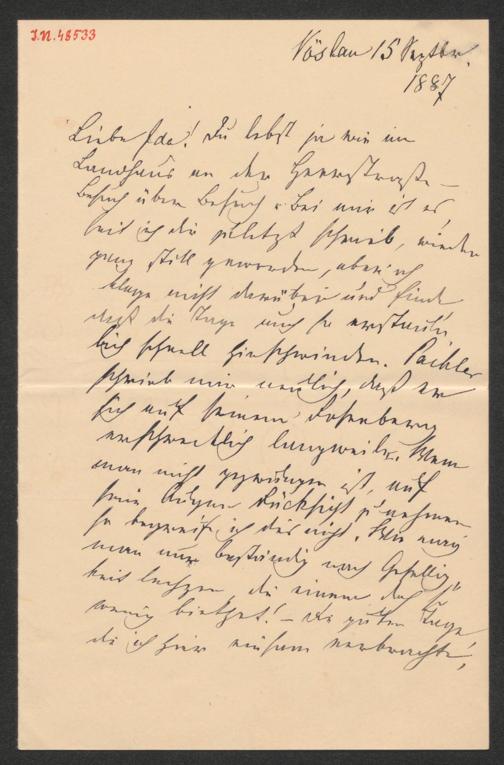 J.N. 48533
Vöslau 15 Septbr.
1887
Liebe Ida! Du lebst ja wie im
Landhaus an der Heerstraße –
Besuch über Besuch. Bei mir ist es,
seit ich dir zuletzt schrieb, wieder
ganz still geworden, aber ich
klage nicht darüber und finde
daß die Tage auch so erstaun
lich schnell hinschwinden. Paüler
schrieb mir neulich, daß er
sich auf seinem Rosenberg
erschrecklich langweile. Wenn
man nicht gezwungen ist, auf
seine Augen Rücksicht zu nehmen
so begreife ich das nicht. Wie mag
man nur beständig nach Gesellig
keit lechzen die einem doch so
wenig bietet! – Die guten Tage,
die ich hier einsam verbrachte,